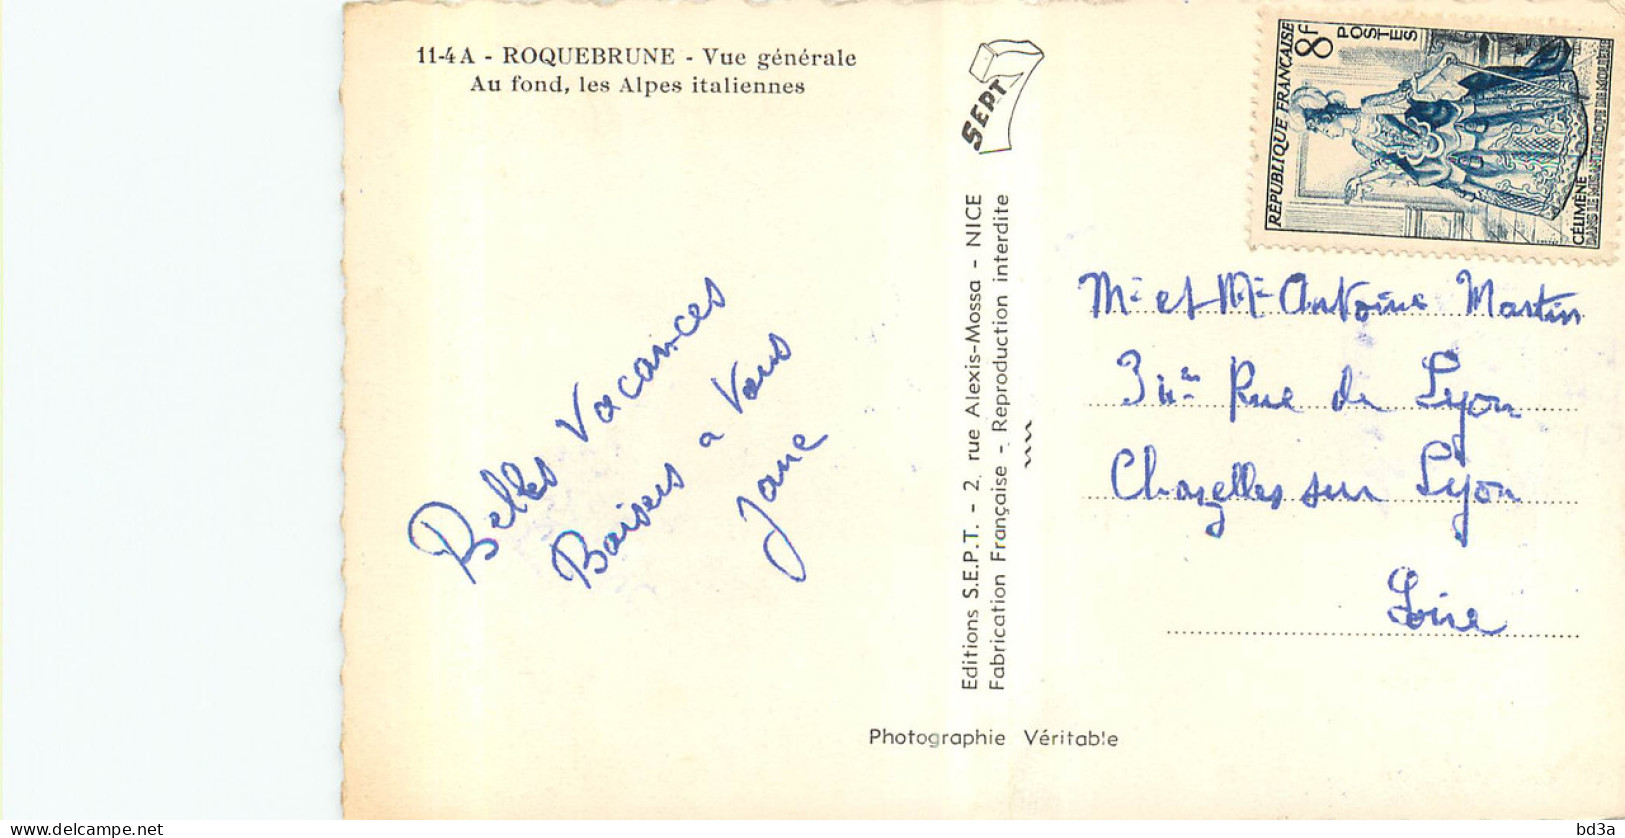 11-4 A - ROQUEBRUNE - Vue générale
Au fond, les Alpes italiennes
SEPT
RÉPUBLIQUE FRANÇAISE
8F
POSTES
CÉLIMÈNE
DANS LE MISANTHROPE DE MOLIÈRE
Belles Vacances
Baisers a Vous
Jane
Editions S.E.P.T. - 2, rue Alexis-Mossa - NICE
Fabrication Française - Reproduction interdite
Mr et Me Antoine Martin
Rue de Lyon
Chazelles sur Lyon
Loire
Photographie Véritable
bd3a